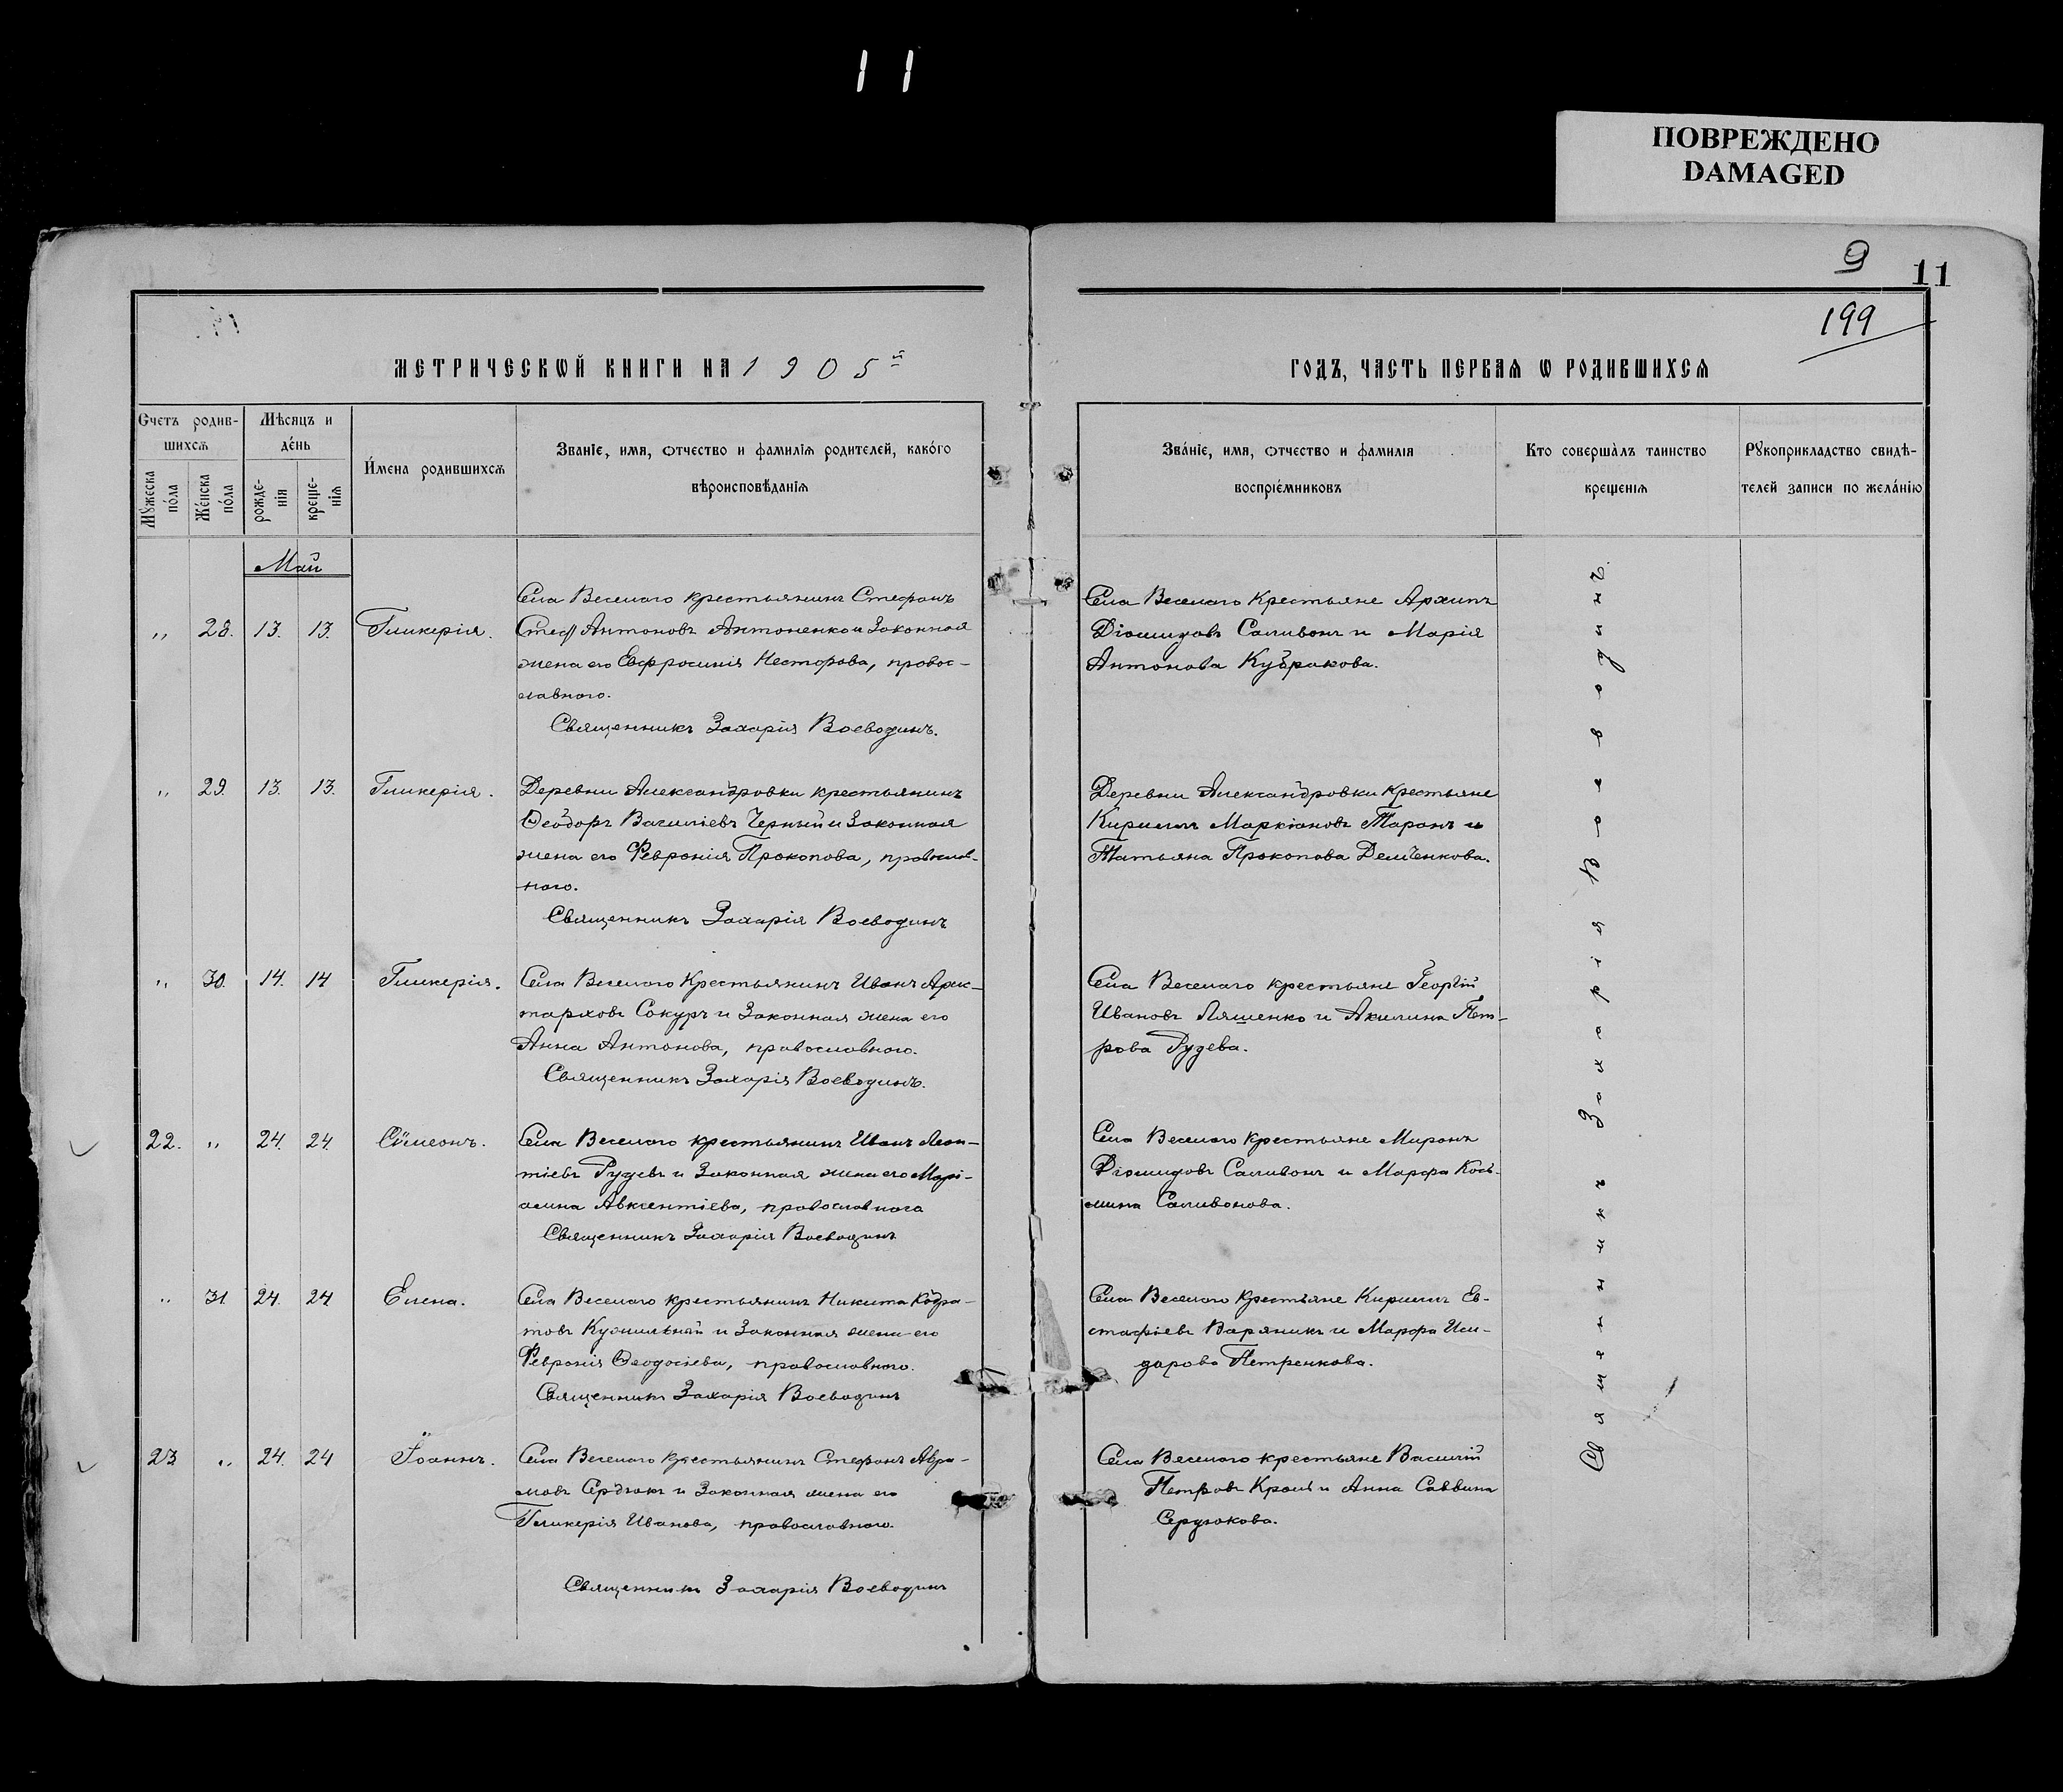 11
ПОВРЕЖДЕНО
DAMAGED
9
11
199
МЕТРИЧЕСКѠЙ КНИГИ НА 1905й
ГОДЪ, ЧАСТЬ ПЕРВАЯ Ѡ РОДИВШИХСЯ
Счетъ родив-
шихся
Мѣсяцъ и
де́нь
Мꙋ́жеска по́ла
Же́нска по́ла
рожде-
нія
креще-
нія
И́мена родившихся
Званіе, имя, отчество и фамилія родителей, како́го
вѣроисповѣданія
Зва́ніе, имя, отчество и фамилія
воспріе́мниковъ
Кто соверша̀лъ таинство
крещенія
Рꙋкоприкладство свидѣ-
телей записи по жела́нію
Май
„ 28. 13. 13. Гликерія.
Села Веселаго крестьянинъ Стефанъ
Антоновъ Антоненко и законная
жена его Евфросинія Несторова, правос-
лавнаго.
Священникъ Захарія Воеводинъ.
Села Веселаго крестьяне Архипъ
Діомидовъ Саливонъ и Марія
Антонова Кудракова.
„ 29. 13. 13. Гликерія.
Деревни Александровки крестьянинъ
Ѳеодоръ Василіевъ Черный и законная
жена его Февронія Прокопова, православ-
наго.
Священникъ Захарія Воеводинъ
Деревни Александровки крестьяне
Кириллъ Маркіановъ Таранъ и
Татьяна Прокопова Демченкова.
„ 30. 14. 14 Гликерія.
Села Веселаго крестьянинъ Иванъ Арис-
тарховъ Сокуръ и законная жена его
Анна Антонова, православнаго.
Священникъ Захарія Воеводинъ.
Села Веселаго крестьяне Георгій
Ивановъ Ляшенко и Акилина Пет-
рова Рудева.
22. „ 24. 24. Сѵмеонъ.
Села Веселаго крестьянинъ Иванъ Леон-
тіевъ Рудевъ и законная жена его Марі-
амна Авксентіева, православнаго
Священникъ Захарія Воеводинъ
Села Веселаго крестьяне Миронъ
Діомидовъ Саливонъ и Марфа Кось-
мина Саливонова.
„ 31 24. 24 Елена.
Села Веселаго крестьянинъ Никита Кодра-
товъ и законная жена его
Февронія Ѳеодосіева, православнаго.
Священникъ Захарія Воеводинъ
Села Веселаго крестьяне Кириллъ Ев-
стафіевъ Варяникъ и Марфа Иси-
дорова Петренкова.
23 „ 24. 24 Іоаннъ.
Села Веселаго крестьянинъ Стефанъ Авра-
мовъ Сердюкъ и законная жена его
Гликерія Иванова, православнаго.
Священникъ Захарія Воеводинъ
Села Веселаго крестьяне Василій
Петровъ и Анна Саввина
Сердюкова.
Священникъ Захарія Воеводинъ.